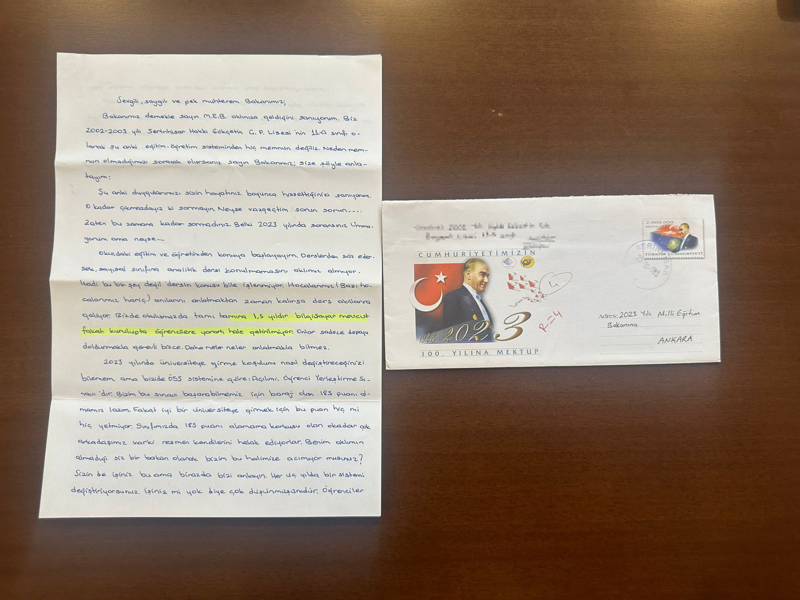 Sevgili, saygılı ve pek muhterem Bakanımız;
Bakanımız demekle sayın M.E.B. aklınıza geldiğini sanıyorum. Biz
2002-2003 yılı Seferihisar Hakkı Gökçetin Ç.P. Lisesi'nin 11-A sınıfı o-
larak şu anki eğitim-öğretim sisteminden hiç memnun değiliz. Neden mem-
nun olmadığımızı soracak olursanız sayın Bakanımız; size şöyle anla-
tayım:
Şu anki duygularımızı sizin hayatınız boyunca hissettiğinizi sanıyorum.
O kadar çıkmazdayız ki sormayın. Neyse vazgeçtim sorun sorun....
Zaten bu zamana kadar sormadınız. Belki 2023 yılında sorarsınız. Ummu-
yorum ama neyse-
Okuldaki eğitim ve öğretimden konuya başlayayım. Derslerden söz eder-
sek, sayısal sınıfına analitik dersi konulmamasını aklımız almıyor.
Hadi bu bir şey değil dersin konusu bile işlenmiyor. Hocalarımız! (Bazı ho-
calarımız hariç) anılarını anlatmaktan zaman kalırsa ders akıllarına
geliyor. Bizde okulumuzda tamı tamına 1,5 yıldır bilgisayar mevcut
fakat kurulupta öğrencilere yararlı hale getirilmiyor. Onlar sadece depoyu
doldurmakla görevli bizce. Daha neler neler anlatmakla bitmez.
2023 yılında üniversiteye girme koşulunu nasıl değiştireceğinizi
bilemem, ama bizide ÖSS sistemine göre: Açılımı: Öğrenci Yerleştirme Sı-
navı'dır. Bizim bu sınavı başarabilmemiz için barajı olan 185 puanı al-
mamız lazım. Fakat iyi bir üniversiteye girmek için bu puan hiç mi
hiç yetmiyor. Sınıfımızda 185 puanı alamama korkusu olan okadar çok
arkadaşımız varki resmen kendilerini helak ediyorlar. Benim aklımın
almadığı siz bir bakan olarak bizim bu halimize acımıyor musunuz?
Sizin de işiniz bu ama birazda bizi anlayın. Her üç yılda bir sistemi
değiştiriyorsunuz işiniz mi yok diye çok düşünmüşümdür. Öğrenciler
CUMHURİYETİMİZİN
2023
100. YILINA MEKTUP
R=4
TÜRKİYE CUMHURİYETİ
2023 Yılı Milli Eğitim
Bakanına
ANKARA